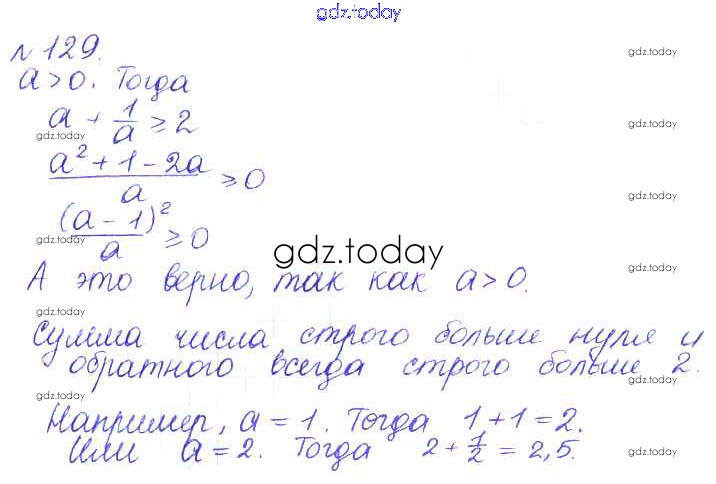 gdz.today
№ 129.
gdz.today
a > 0. Тогда
a + 1/a ≥ 2
gdz.today
gdz.today
(a² + 1 - 2a)/a ≥ 0
gdz.today
(a - 1)²/a ≥ 0
gdz.today
gdz.today
gdz.today
А это верно, так как a > 0.
gdz.today
gdz.today
gdz.today
Сумма числа строго больше нуля и
обратного всегда строго больше 2.
gdz.today
gdz.today
Например, a = 1. Тогда 1 + 1 = 2.
Или a = 2. Тогда 2 + 1/2 = 2,5.
gdz.today
gdz.today